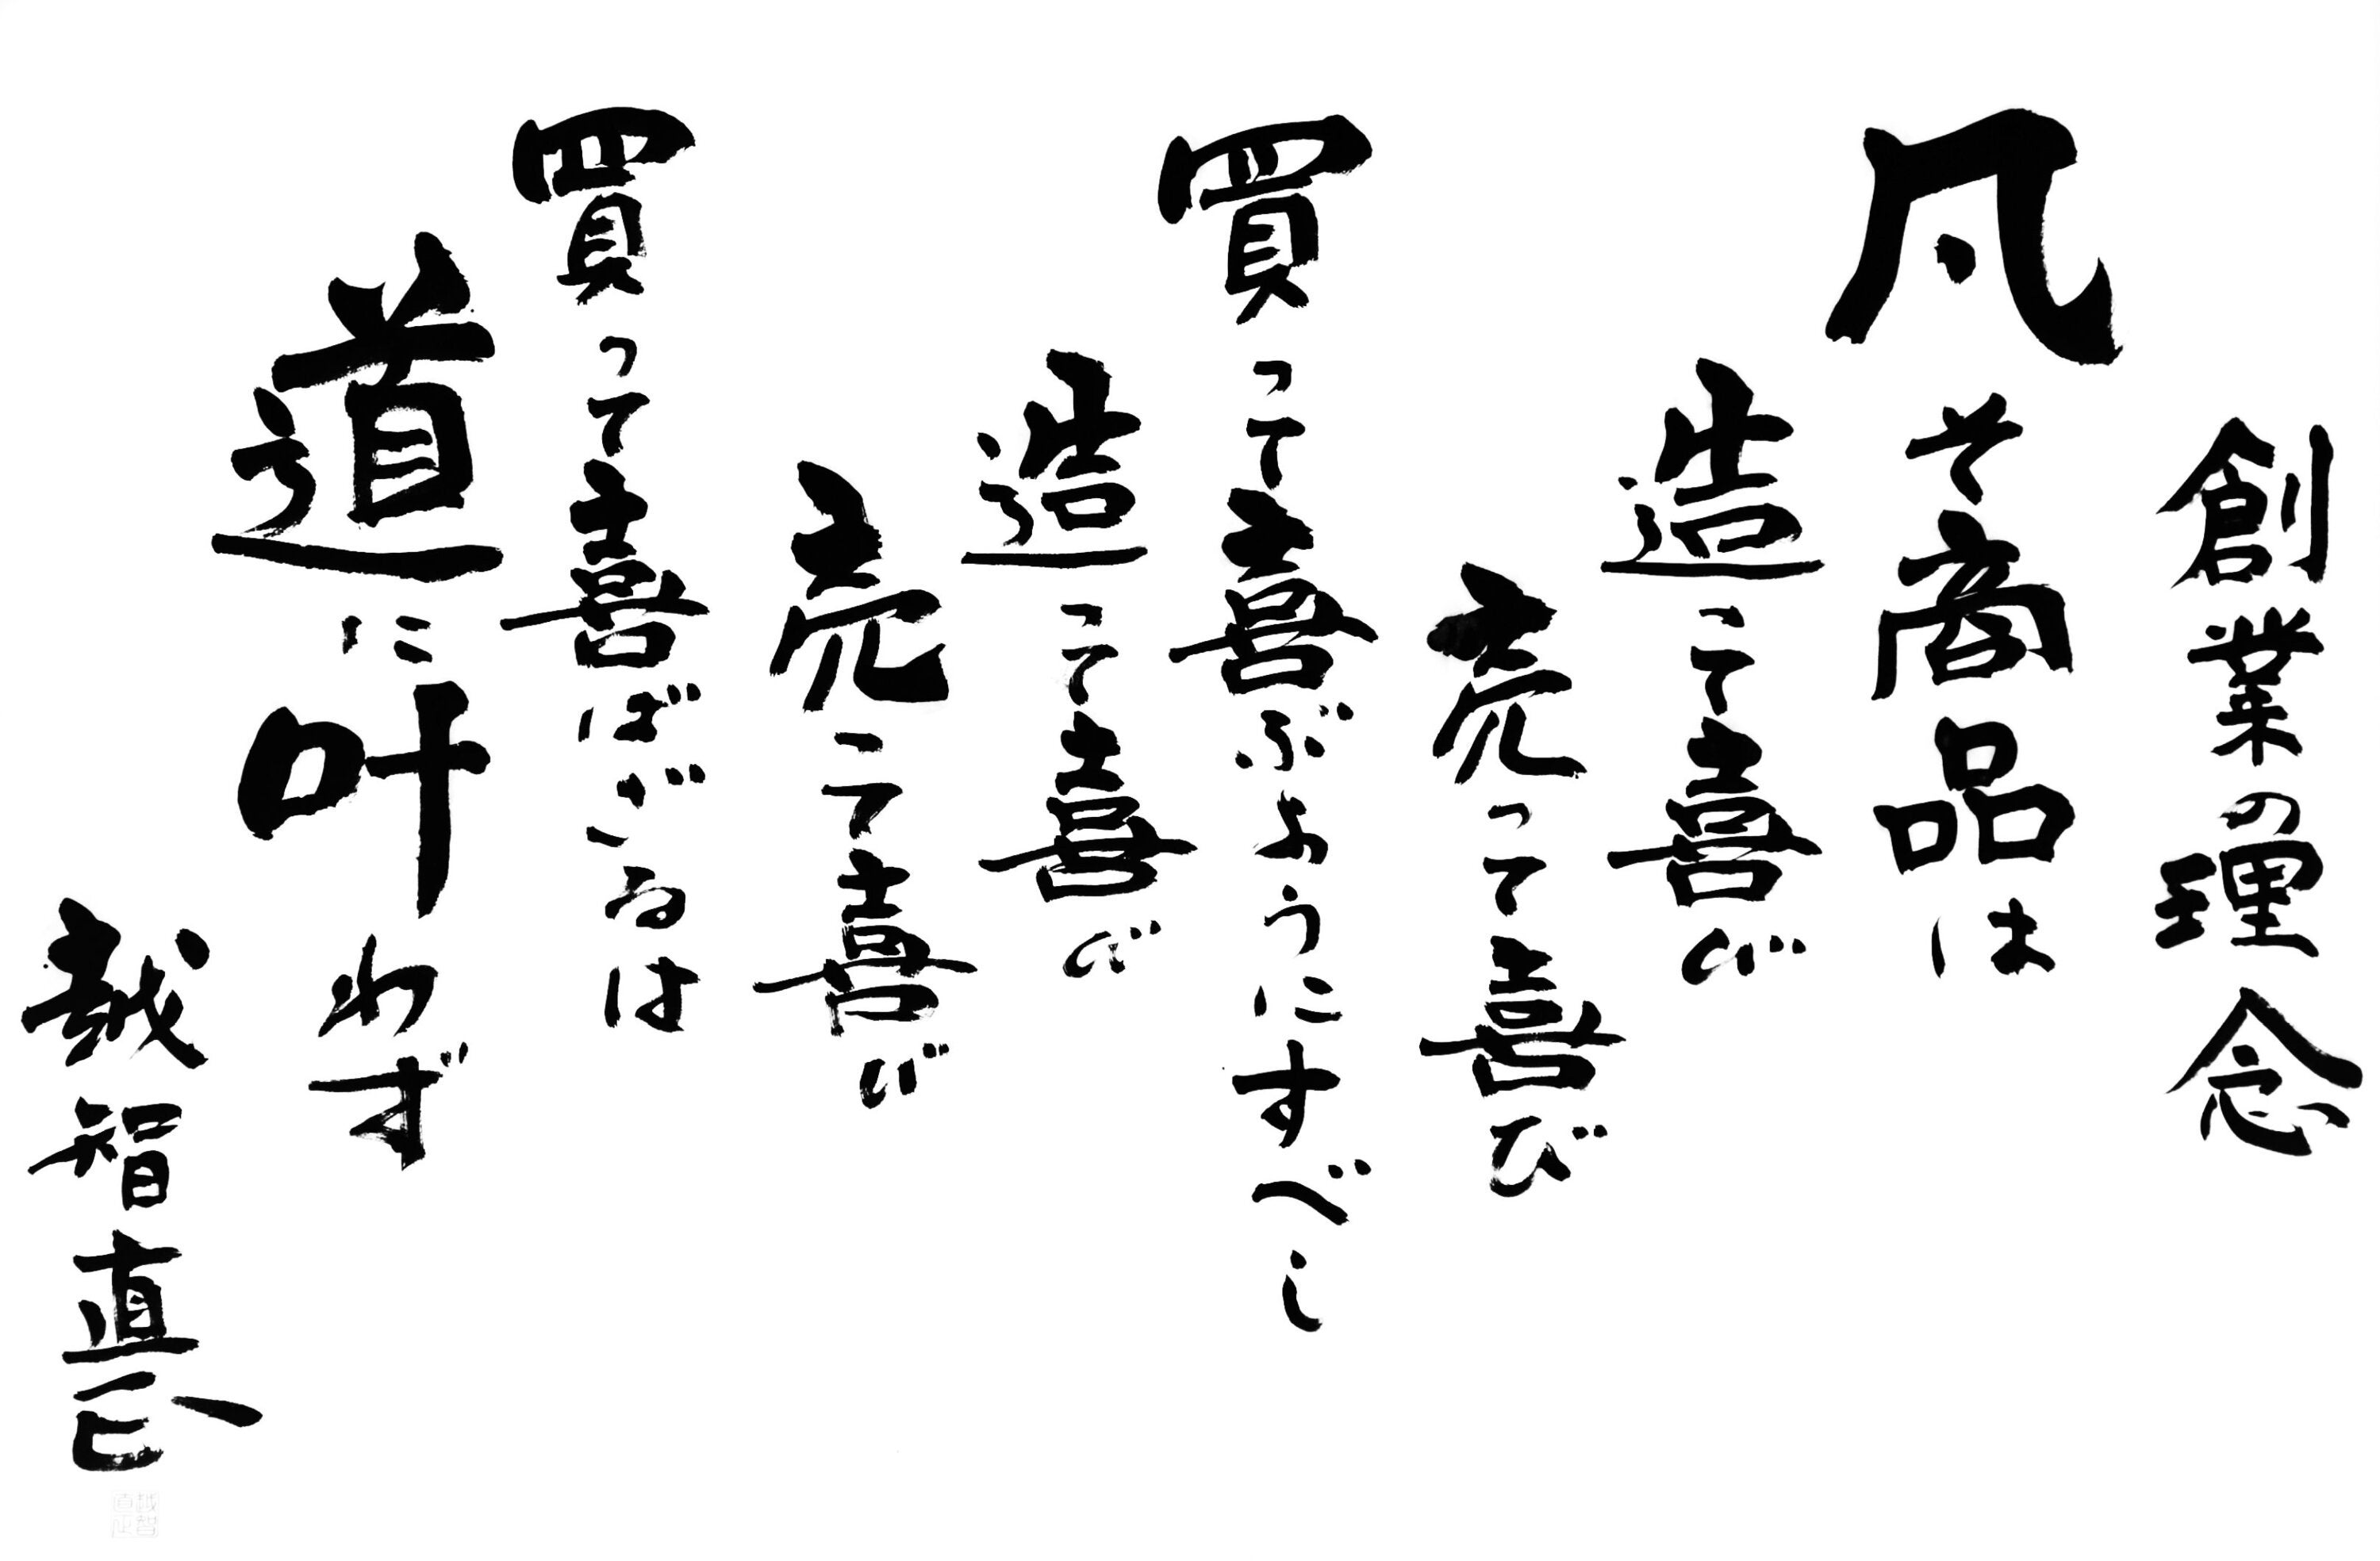 創業の理念
凡そ商品は
造って喜び
売って喜び
買って喜ぶようにすべし
造って喜び
売って喜び
買って喜ばざるは
道に叶わず
越智直正
越智直正